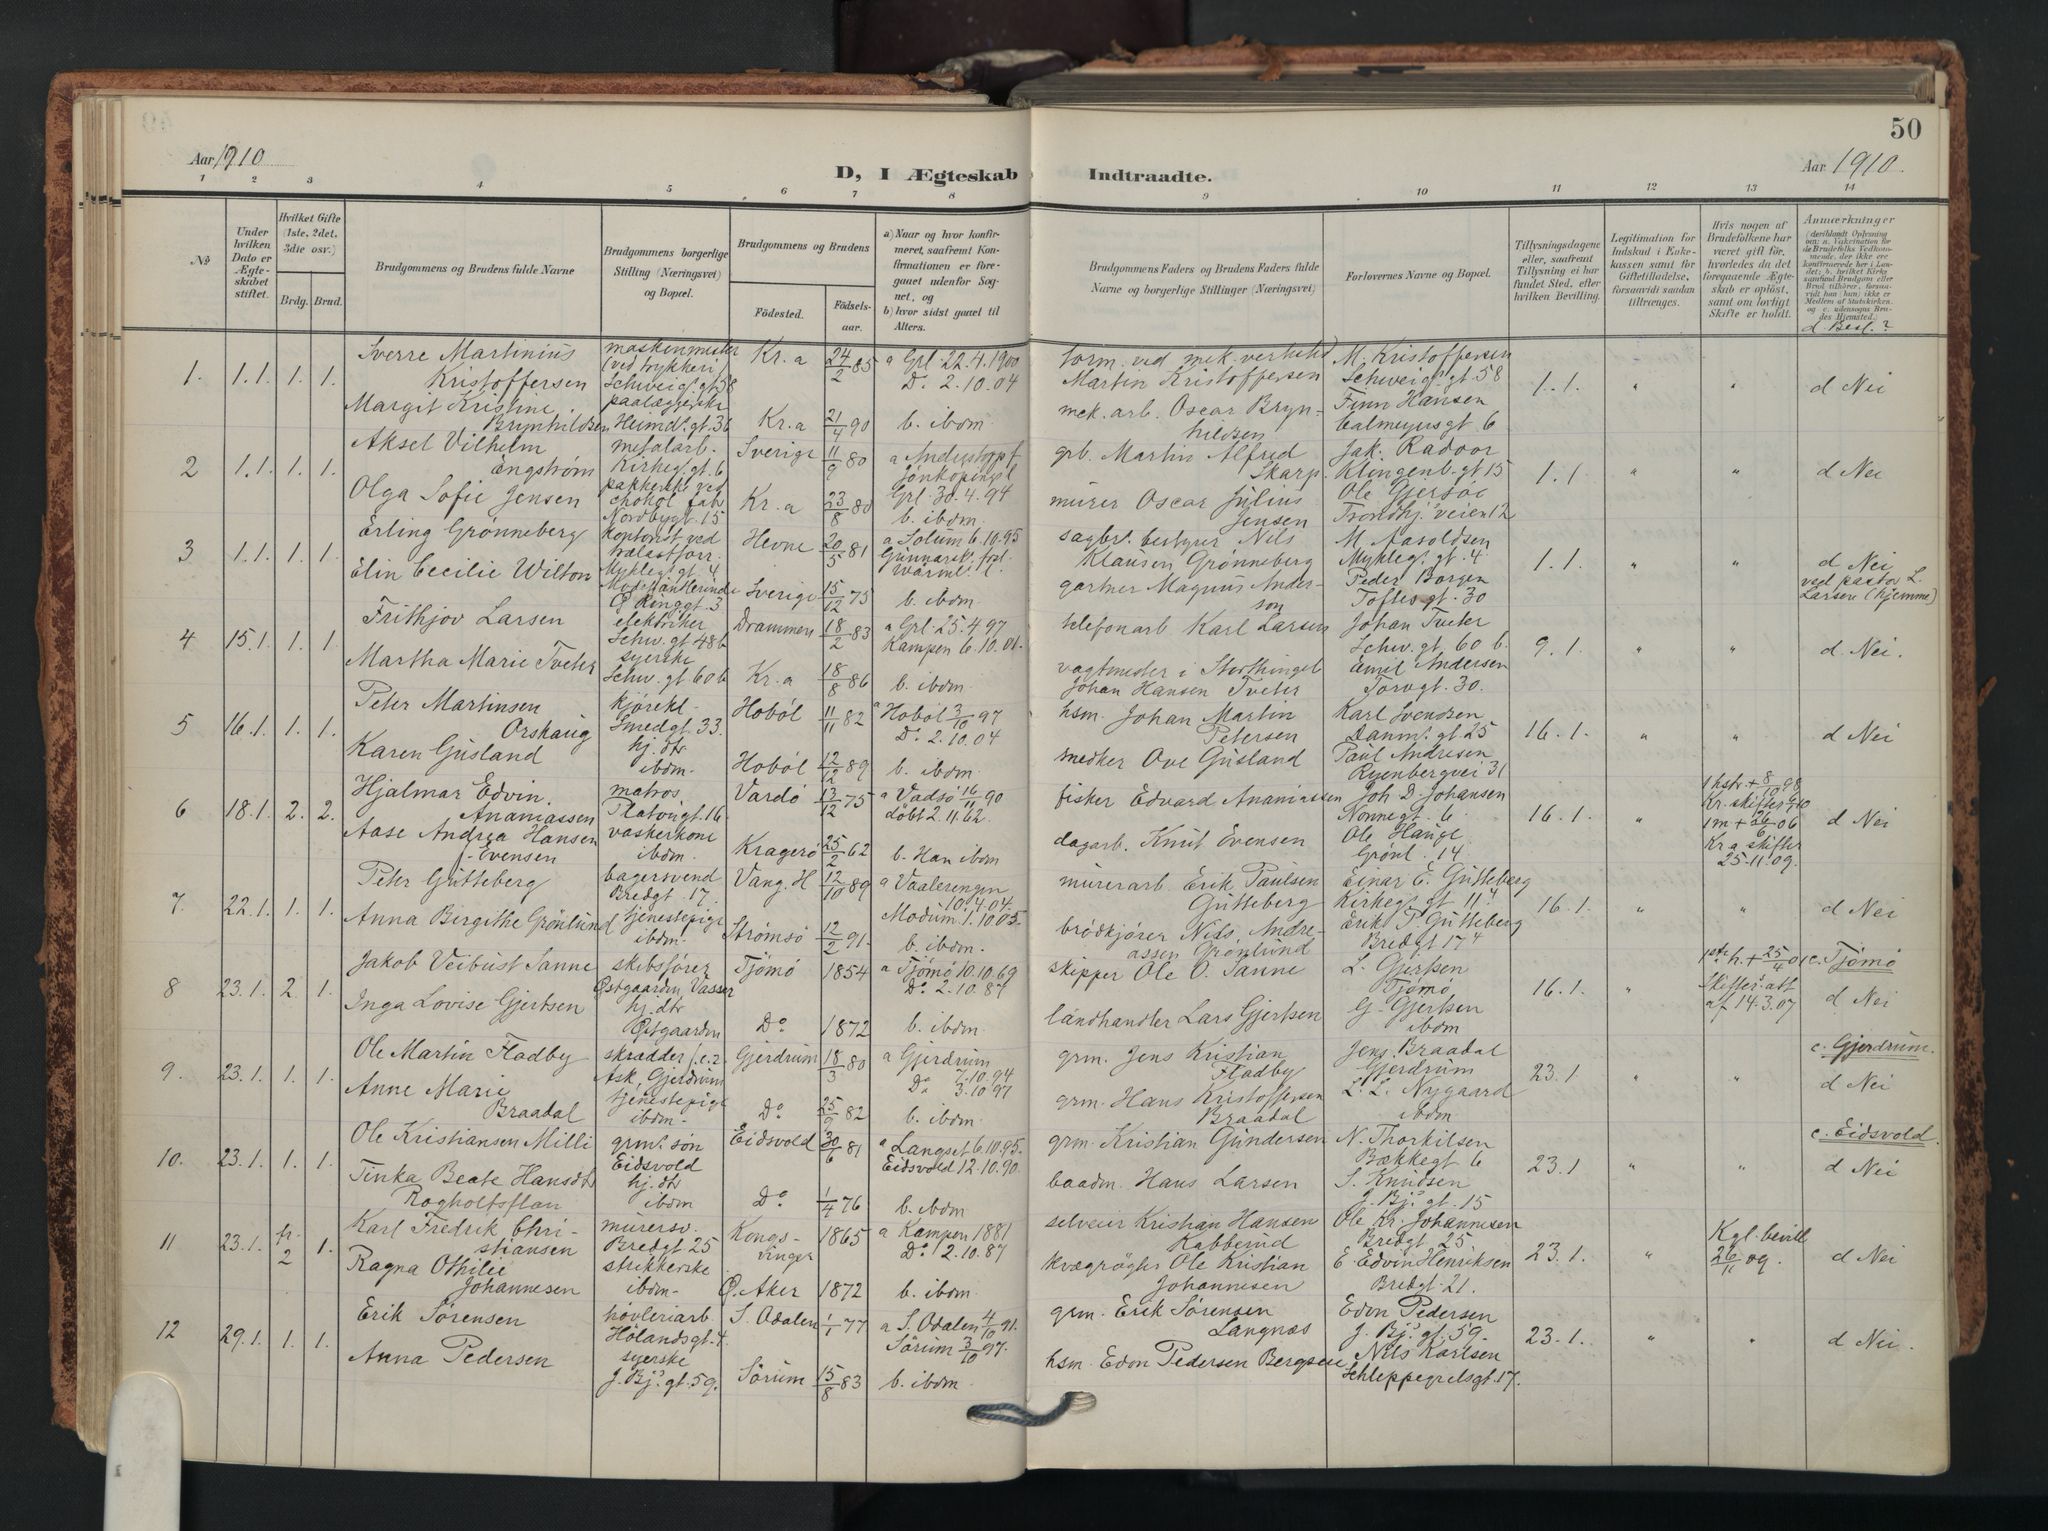 50
Aar 1910
D, I Ægteskab Indtraadte.
Aar 1910.
1 2 3 4 5 6 7 8 9 10 11 12 13 14
No
Under hvilken Dato er Ægteskabet stiftet.
Hvilket Gifte (1ste, 2det, 3die osv.)
Brdg. Brud.
Brudgommens og Brudens fulde Navne
Brudgommens borgerlige Stilling (Næringsvei) og Bopæl.
Brudgommens og Brudens
Födested.
Födselsaar.
a) Naar og hvor konfirmeret, saafremt Konfirmationen er foregaaet udenfor Sognet, og
b) hvor sidst gaaet til Alters.
Brudgommens Faders og Brudens Faders fulde Navne og borgerlige Stillinger (Næringsvei)
Forlovernes Navne og Bopæl.
Tillysningsdagene eller, saafremt Tillysning ei har fundet Sted, efter hvilken Bevilling.
Legitimation for Indskud i Enkekassen samt for Giftetilladelse, forsaavidt saadan tiltrænges.
Hvis nogen af Brudefolkene har været gift før, hvorledes da det foregaaende Ægteskab er opløst, samt om lovligt Skifte er holdt.
Anmærkninger
(deriblandt Oplysning om: a. Vakcination for de Brudefolks Vedkommende, der ikke ere konfirmerede her i Landet; b. hvilket Kirkesamfund Brudgom eller Brud tilhører, forsaavidt hun (han) ikke er Medlem af Statskirken, og c. udensogns Brudes Hjemsted.)
d Besl.?
1. 1.1. 1. 1. Sverre Martinius Kristoffersen maskinmester (ved trykkeri) Schweigs gt 58 Kr.a 24/2 85 a Grl. 22.4.1900 Do 2.10.04 form. ved mek. verksted Martin Kristoffersen M. Kristoffersen Schweigs gt 58 1.1. " " d Nei
Margit Kristine Brynhildsen paalæggerske Heimd. gt. 36 Kr.a 21/4 90 b. ibdm. mek. arb. Oscar Brynhildsen Finn Hansen Calmeyersgt 6
2 1.1. 1. 1. Aksel Vilhelm Engstrøm metalarb. Kirkeg. gt. 6 Sverige 11/9 80 a Jönköpings l grb. Martin Alfred Skarp Jak. Radoor Klingenb. gt 15 1.1 " " d Nei
Olga Sofie Jensen pakkerske ved chokol. fabr. Nordbygt. 15 Kr.a 23/8 80 Grl 30.4.94 b. ibdm. murer Oscar Julius Jensen Ole Gjersöe Trondhj.s veien 12
3 1.1. 1. 1. Erling Grønneberg kontorist ved trælastforr. Mykleg. gt. 4 Hevne 20/5 81 a Solum 6.10.95 sagbr. bestyrer Nils Klausen Grønneberg M. Aasoldsen Mykleg. gt. 4 1.1. " " d Nei ved pastor L. Larsen (hjemme)
Elin Cecilie Wilton Modehandlerinde Ø Ringgt. 3 Sverige 15/12 75 Gunnarsk. fors. Warml. l. b. ibdm. gartner Magnus Anderson Peder Borgen Toftes gt. 30
4 15.1. 1. 1. Frithjov Larsen elektriker Schw. gt 48b Drammen 18/2 83 a Grl 25.4.97 telefonarb. Karl Larsen Johan Tveter Schw. gt 60 b. 9.1. " " d. Nei.
Martha Marie Tveter syerske Schw. gt 60 b Kr.a 18/8 86 Kampen 6.10.01. b. ibdm. vagtmester i Storthinget Johan Hansen Tveter Emil Andersen Torvgt. 30.
5 16.1. 1. 1. Peter Martinsen Orskaug kjörekl. Smedgt. 33. Hoböl 11/11 82 a Hoböl 3/10 97 hsm. Johan Martin Petersen Karl Svendsen Danm.s gt. 25 16.1. " " d Nei
Karen Gusland hj. dtr ibdm. Hoböl 12/12 89 Do 2.10.04 b. ibdm. smedker Ove Gusland Paul Andresen Ryenbergvei 31
6 18.1. 2. 2. Hjalmar Edvin Ananiassen matros Platougt. 16 Vardö 13/12 75 a Vadsö 16/11 90 fisker Edvard Ananiassen Joh. D. Johansen Nonnegt. 6 16.1. " 1 hstr + 8/10 98 Kr. skifter 9/10 1 m + 26/6 06 Kr a skifter 25.11.09. d Nei
Aase Andrea Hansen f. Evensen vaskerkone ibdm. Kragerö 25/2 62 Döbt 2.11.62. b. Han ibdm dagarb. Knut Evensen Ole Hauge Grönl. 14
7. 22.1. 1. 1. Peter Gutteberg bagersvend Bredgt. 17. Vang. H 12/10 89 a Vaalerengen 10.4.04. murerarb. Erik Paulsen Gutteberg Einar E. Gutteberg Kirkegt gt 11 16.1. " " d Nei
Anna Birgithe Grönlund tjenestepige ibdm. Strömsö 12/2 91. Modum 1.10.05. b. ibdm. brödkjörer Nils Andreassen Grönlund Erik P. Gutteberg Bredgt 17
8 23.1. 2. 1. Jakob Veibust Sanne skibsförer Østgaarden Vasser Tjömö 1854 a Tjömö 10.10.69 skipper Ole O. Sanne L. Gjertsen Tjömö 16.1. " 1ste h. + 25/4 01 Skifter. att af 14.3.07 c. Tjömö d Nei
Inga Lovise Gjertsen hj. dtr Østgaarden Do 1872 Do 2.10.87 b. ibdm. landhandler Lars Gjertsen G. Gjertsen ibdm
9. 23.1. 1. 1. Ole Martin Fladby skrædder Ask, Gjerdrum Gjerdrum 18/3 80 a Gjerdrum 7.10.94 grm. Jens Kristian Fladby Jens Braadal Gjerdrum 23.1. " " c. Gjerdrum. d Nei
Anne Marie Braadal tjenestepige ibdm. Do 25/9 82 Do 3.10.97 b. ibdm. grm. Hans Kristoffersen Braadal L. L. Nygaard ibdm.
10. 23.1. 1. 1. Ole Kristiansen Milli grm.s sön Eidsvold Eidsvold 30/6 81 a Langset 6.10.95. grm. Kristian Gundersen N. Thorkilsen Bækkegt 6 23.1 " " c. Eidsvold. d Nei
Tinka Beate Hansdtr Rogholtsflan hj. dtr ibdm Do 1/4 76 Eidsvold 12.10.90. b. ibdm baadm. Hans Larsen S. Knudsen J. Bj.s gt. 15
11 23.1. fr. 2 1. Karl Fredrik Christiansen murersv. Bredgt 25 Kongsvinger 1865 a Kampen 1881 selveier Kristian Hansen Kabberud Ole Kr. Johannesen Bredgt. 25 23.1. " Kgl. bevill 26/11 09. d Nei
Ragna Othilie Johannesen strikkerske ibdm. Ø. Aker 1872 Do 2.10.87 b. ibdm. kvægrögter Ole Kristian Johannesen E. Edvin Henriksen Bredgt. 21.
12 29.1. 1. 1. Erik Sørensen høvleriarb. Hölandsgt. 4. S. Odalen 1/1 77 a S. Odalen 4/10 91. grm. Erik Sørensen Langnæs Edon Pedersen J. Bj.s gt. 59. 23.1. " " d Nei.
Anna Pedersen syerske J. Bj.s gt. 59. Sörum 15/8 83 Sörum 3/10 97. b. ibdm. hsm. Edon Pedersen Bergseie Nils Karlsen Schleppegrelsgt. 17.